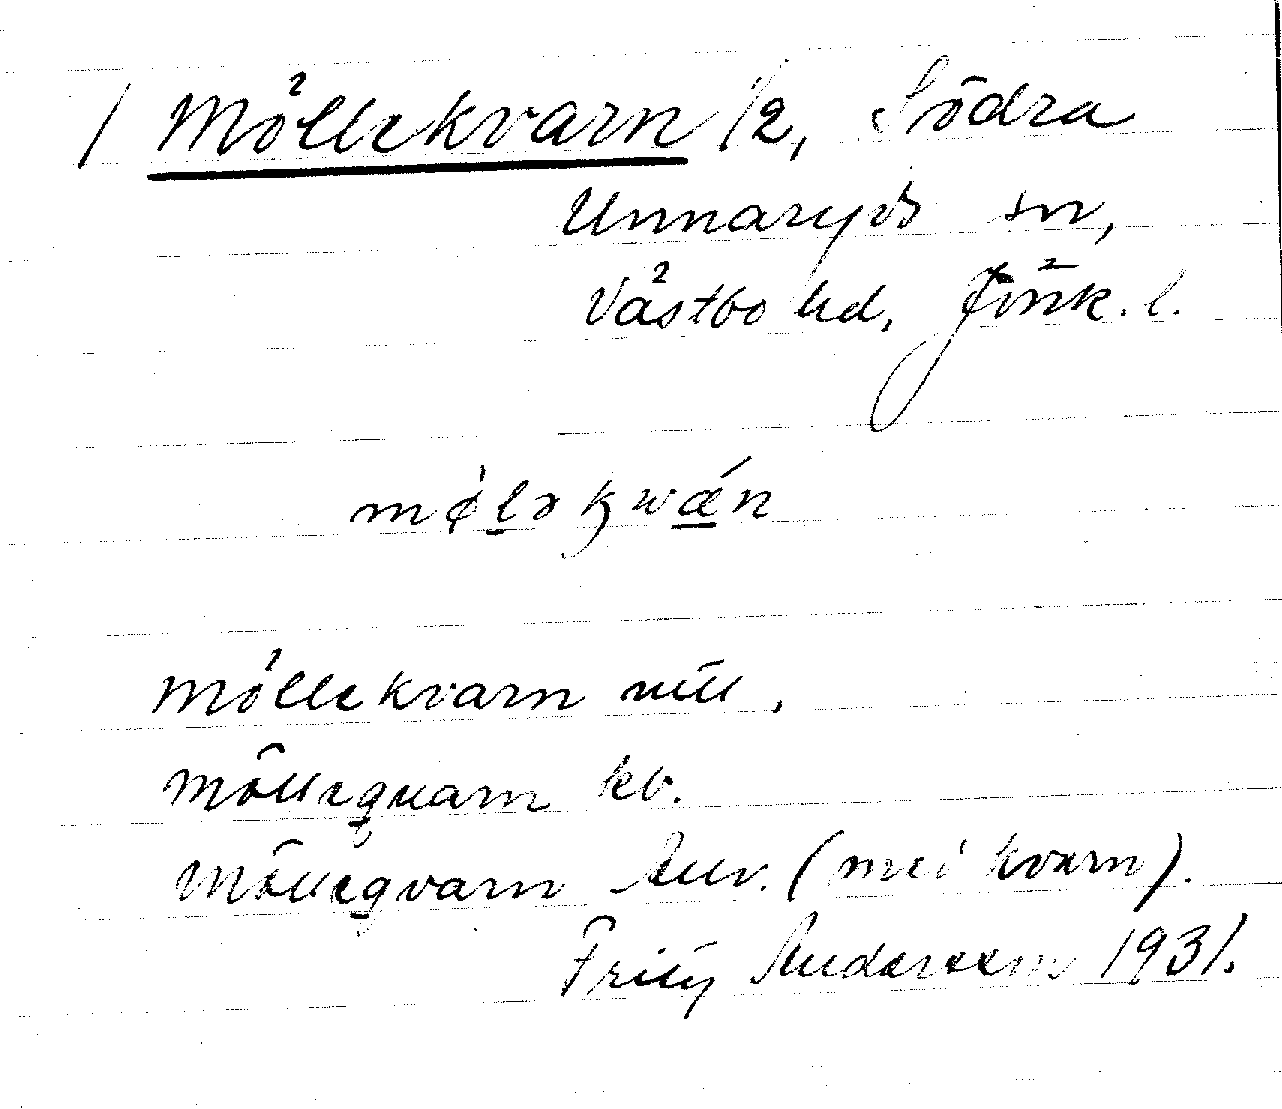 / Möllekvarn 1/2, Södra
Unnaryds sn,
Västbo hd, Jönk. l.
mø̀lə kwǽn
Möllekvarn
Möllequarn kb.
Möllegvarn (med kvarn).
Fritz Andersson 1931.